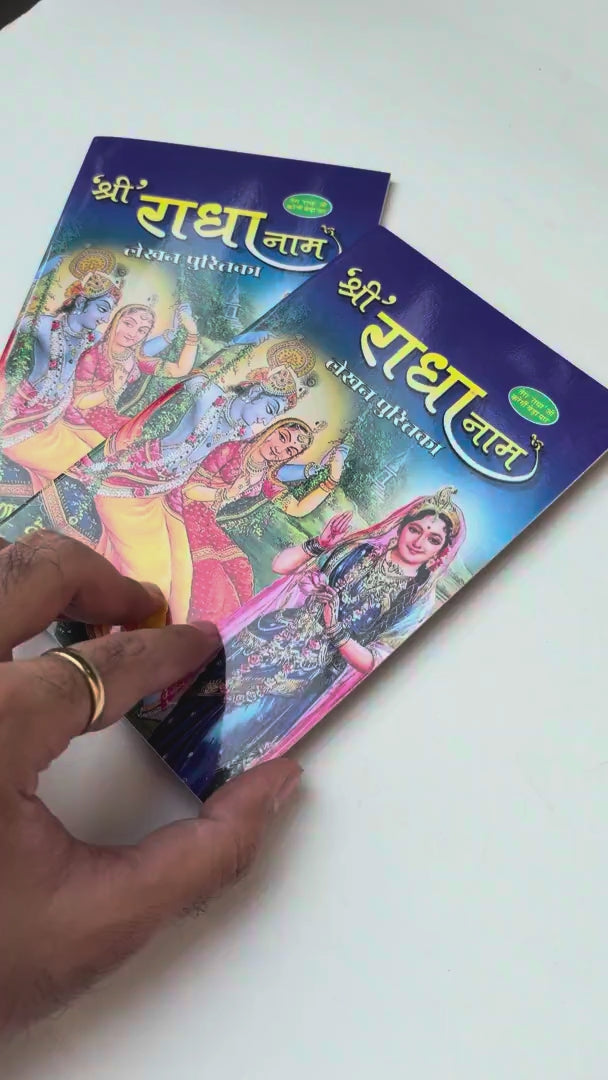 'श्री'
राधा नाम
लेखन पुस्तिका
'श्री'
राधा नाम
लेखन पुस्तिका